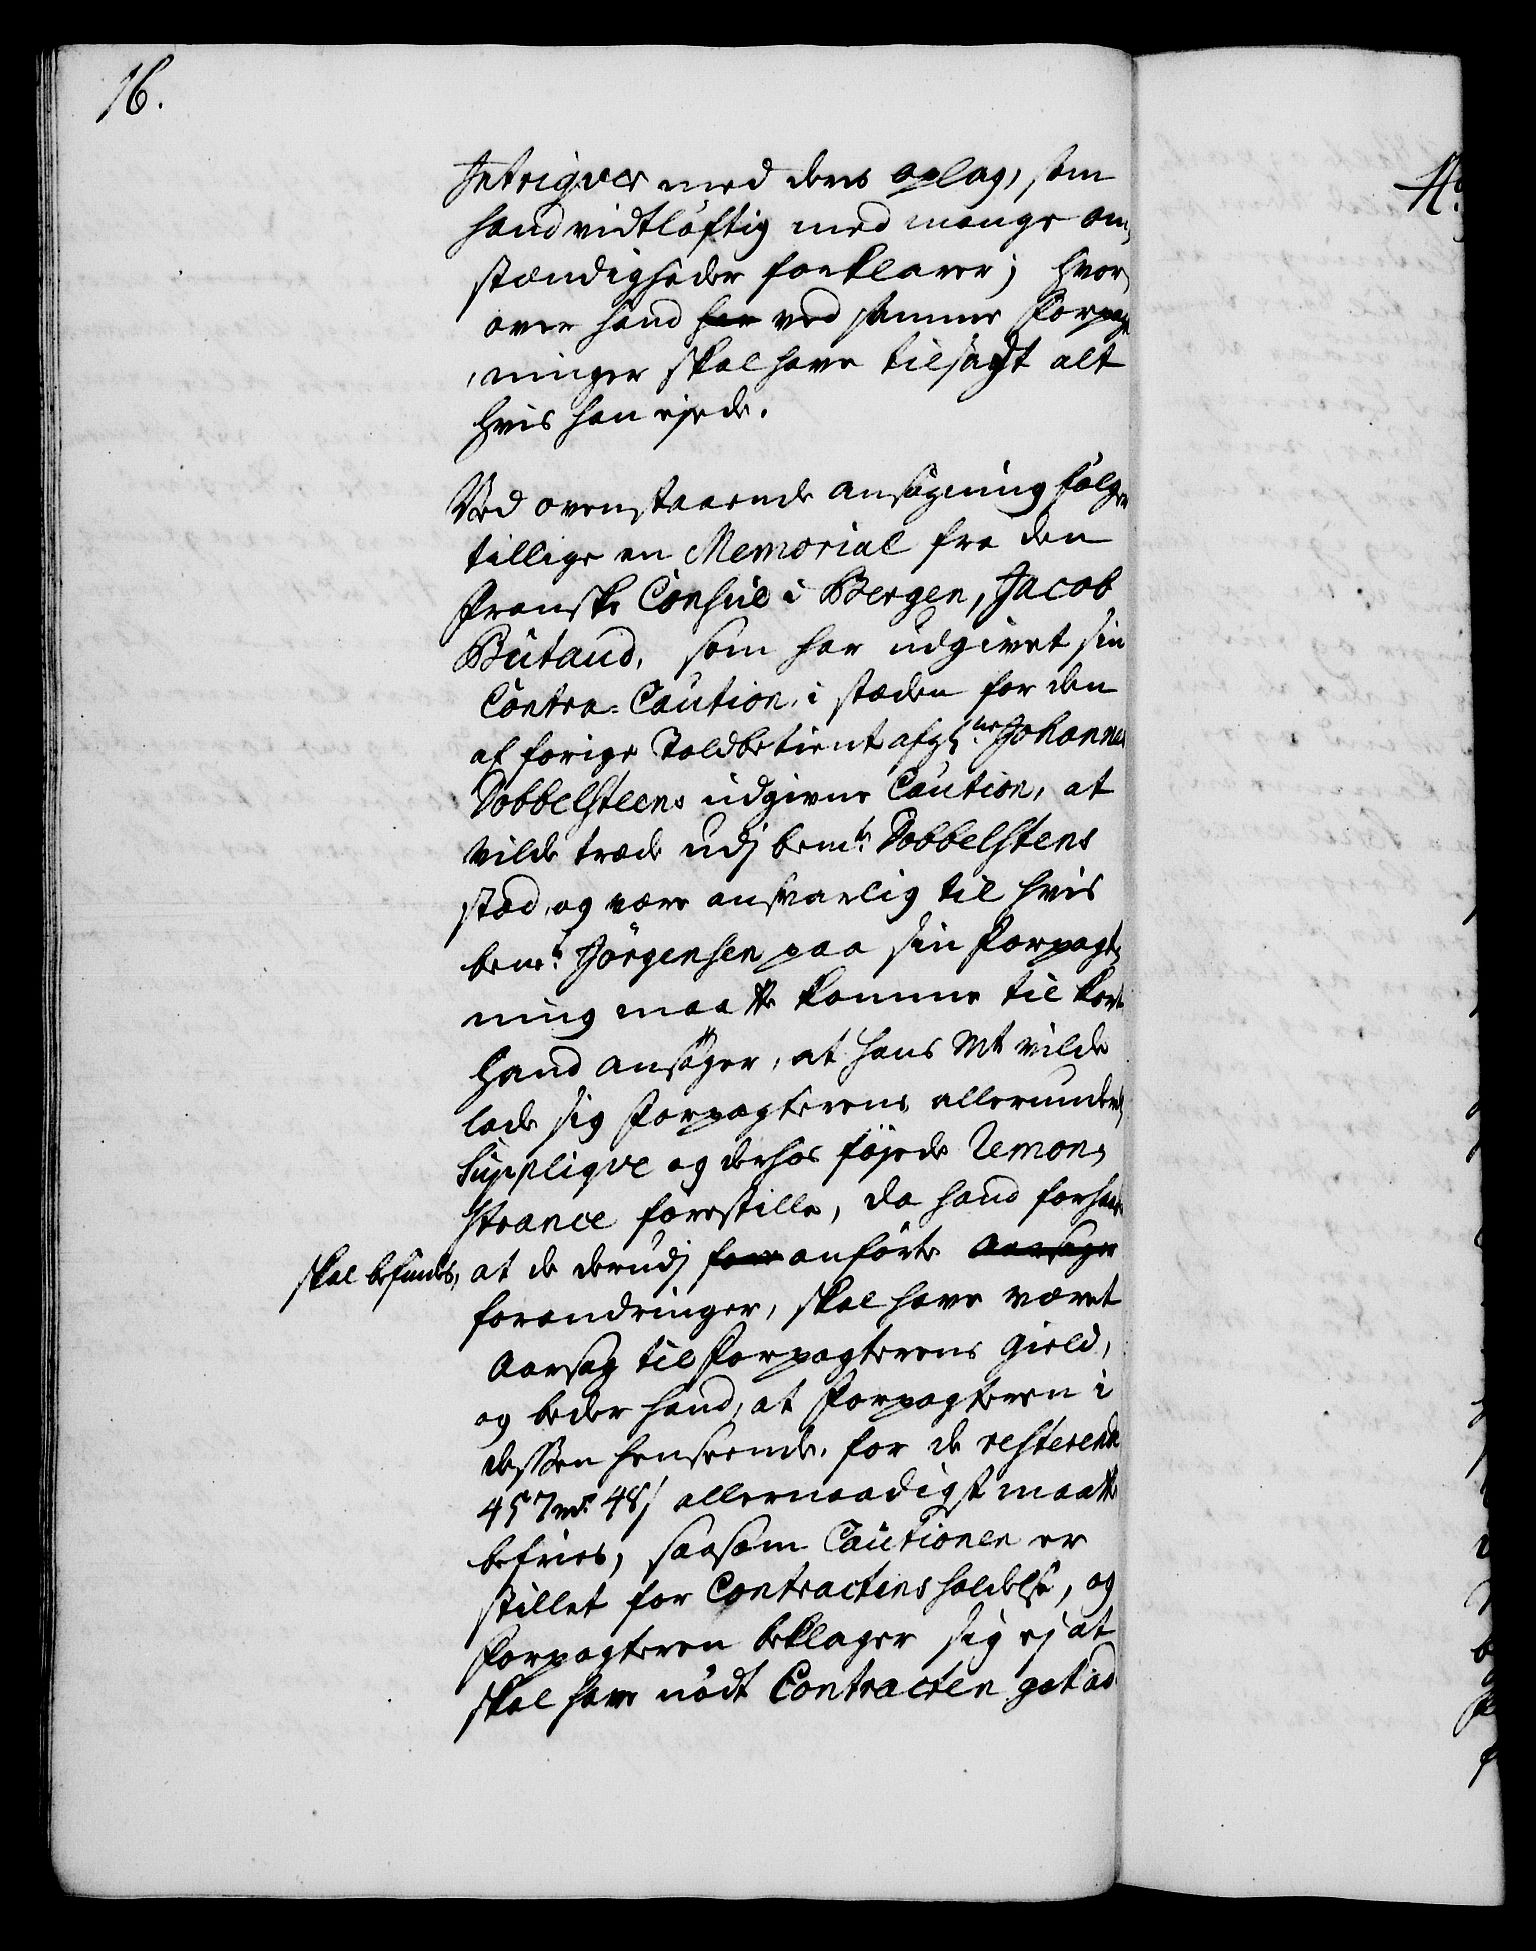 16.
Intrigver med dens oplag, som
hand vidtløftig med mange om,
stændigheder forklarer; hvor,
over hand har ved samme Forpagt
,ninger skal have tilsadt alt
hvis han ejede.
Ved ovenstaaende ansøgning følger
tillige en Memorial fra den
Franske Consul i Bergen, Jacob
Butaud, som har udgivet sin
Contra-Caution, i stæden for den
af forige Toldbetient afg: Johannes
Dobbelsteens udgivne Caution, at
vilde træde udj bemte Dobbelstens
stæd, og være ansvarlig til hvis
bemt Jörgensen paa sin Forpagt,
ning maatte komme til kort
Hand ansøger, at Hans Mt vilde
lade sig Forpagterens allerunderd
Supplique og derhos føjede Remon,
strance forestille, da hand forhaab
skal befindes, at de derudj anførte Aarsager
forandringer, skal have været
Aarsag til Forpagterens Gield,
og beder hand, at Forpagteren i
dessen henseende, for de resterende
457 rd 48 / allernaadigst maatte
befries, saasom Cautionen er
stillet for Contractens holdelse, og
Forpagteren beklager sig ej at
skal have nødt Contracten gotad